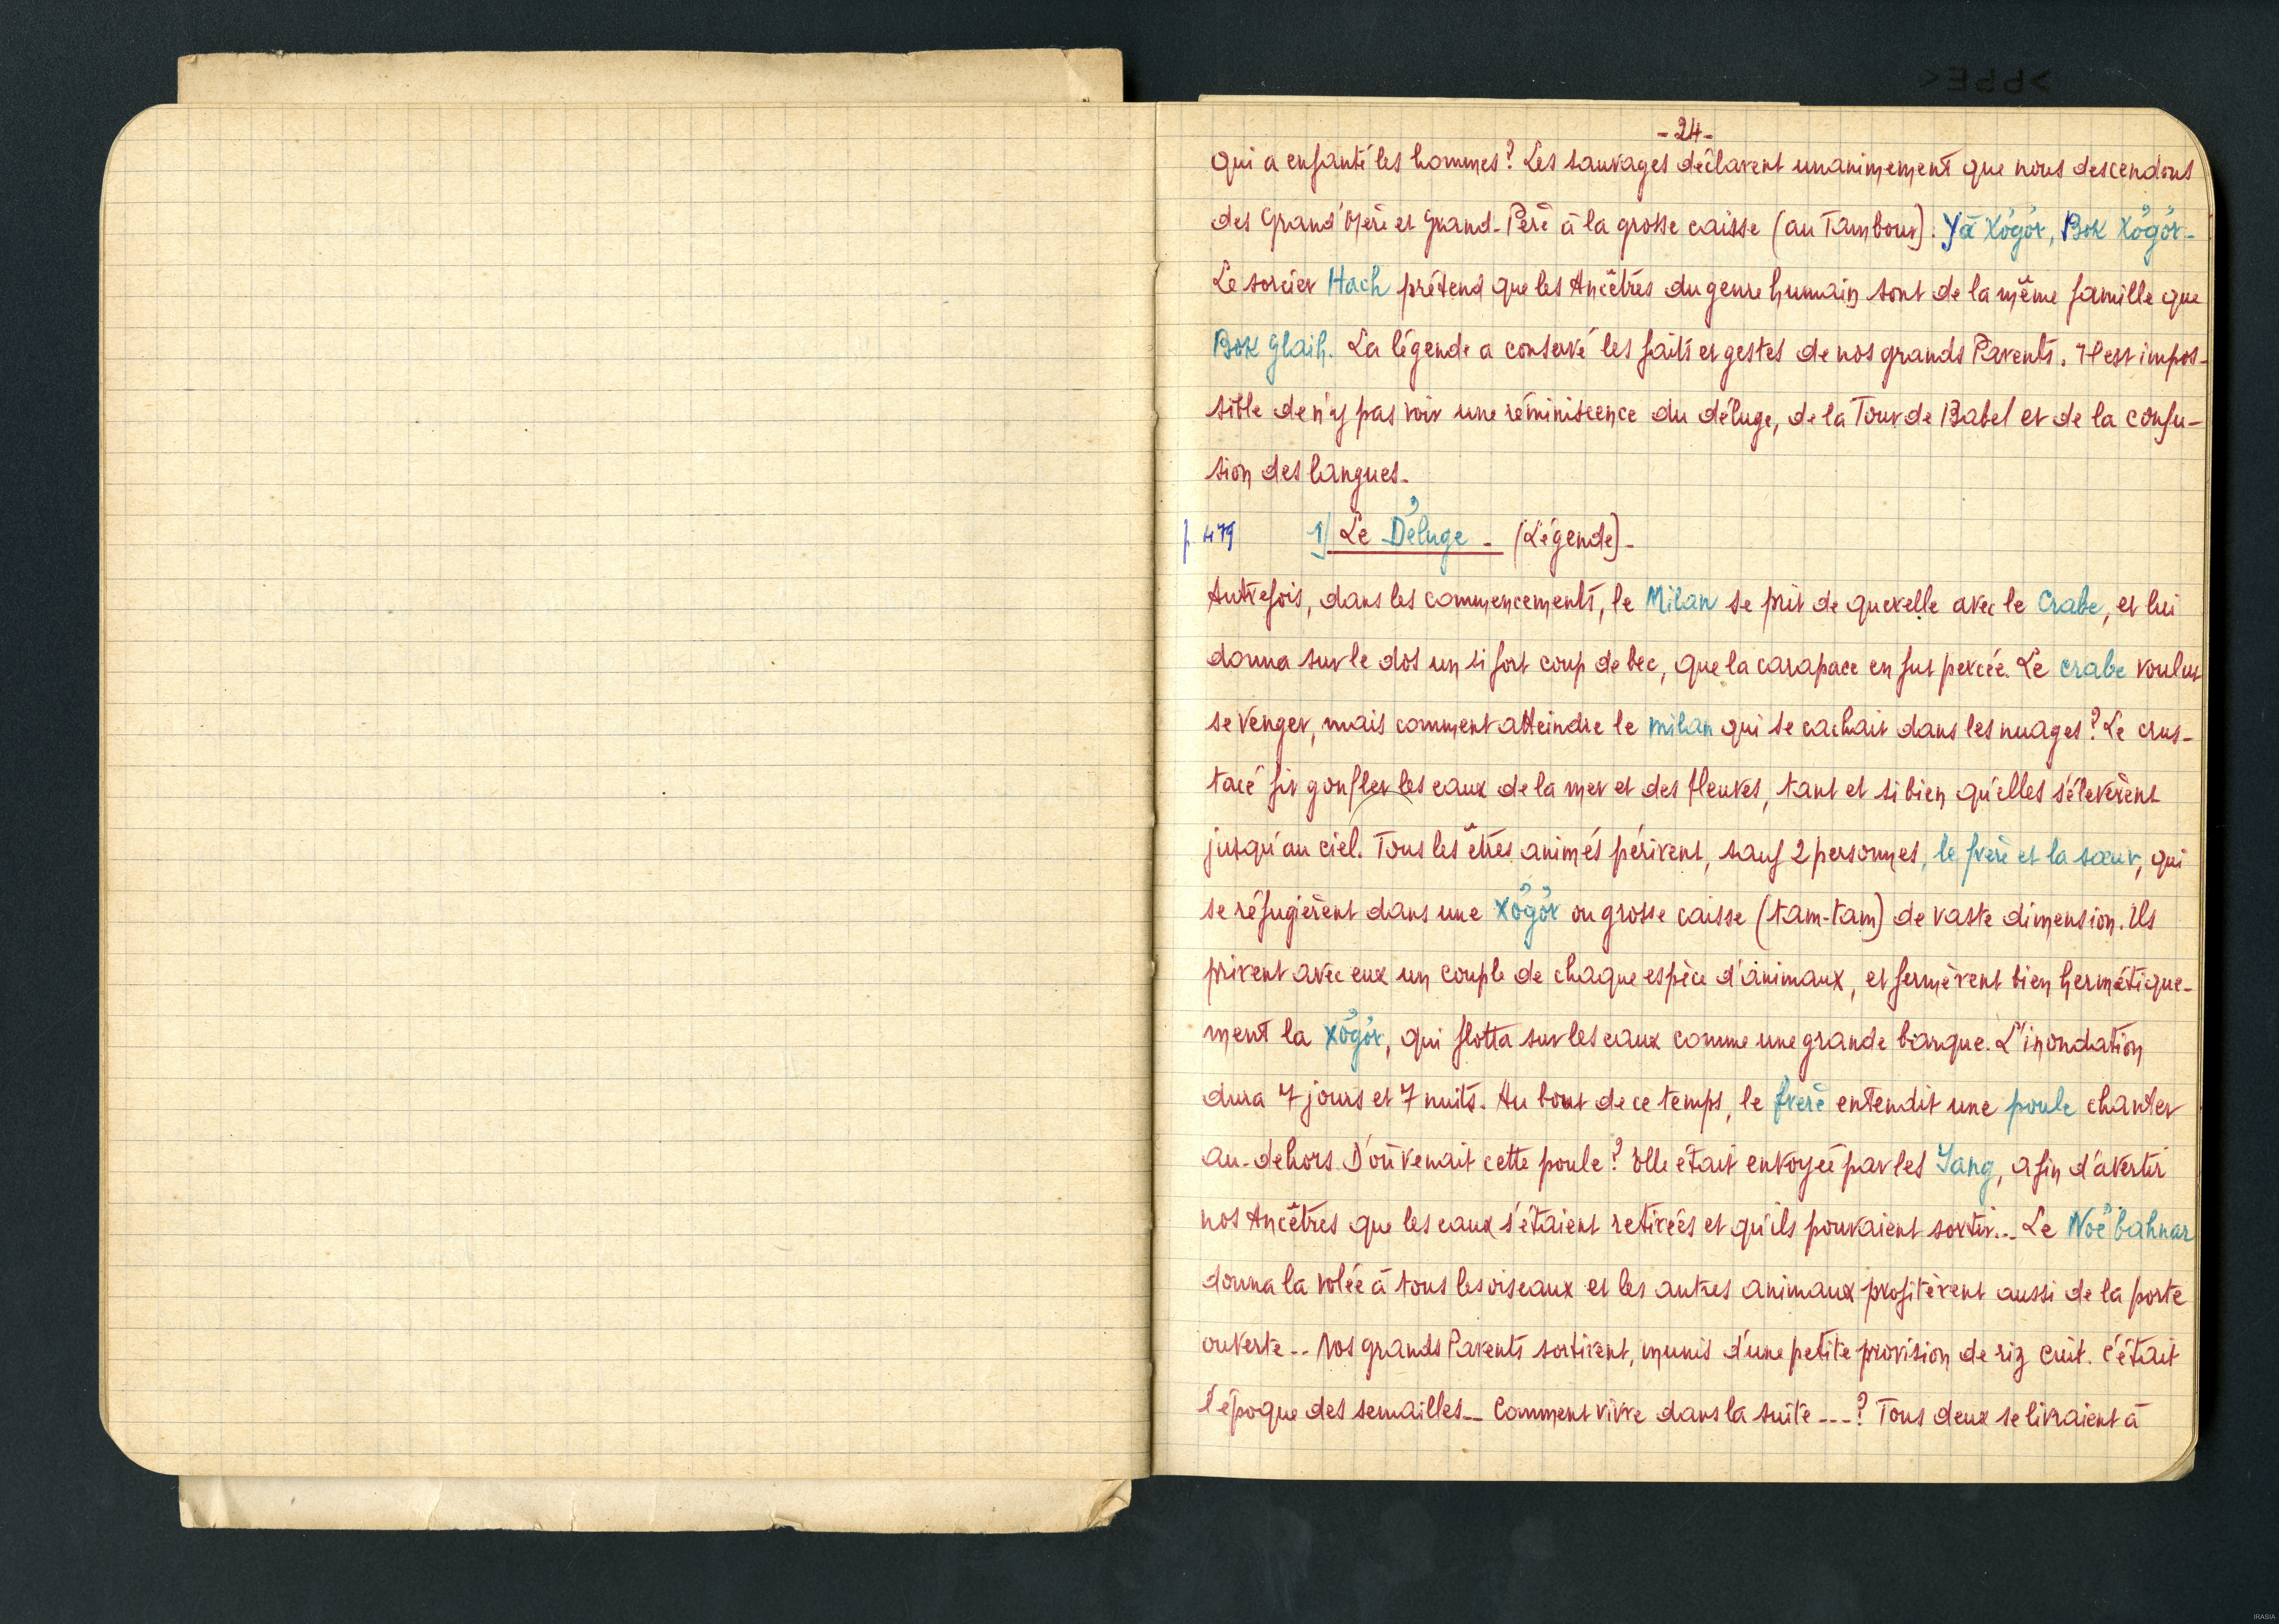 - 24 -
qui a enfanté les hommes? Les sauvages déclarent unanimement que nous descendons
des Grand'Mère et Grand-Père à la grosse caisse (au Tambour). Yă Xơ̆gơ̆r, Bok Xơ̆gơ̆r-
Le sorcier Hach prétend que les Ancêtres du genre humain sont de la même famille que
Bok Glaih. La légende a conservé les faits et gestes de nos grands Parents. Il est impos-
sible de n'y pas voir une réminiscence du déluge, de la Tour de Babel et de la confu-
sion des langues.
p. 479 1) Le Déluge - (Légende).
Autrefois, dans les commencements, le Milan se prit de querelle avec le Crabe, et lui
donna sur le dos un si fort coup de bec, que la carapace en fut percée. Le crabe voulut
se venger, mais comment atteindre le milan qui se cachait dans les nuages? Le crus-
tacé fit gonfler les eaux de la mer et des fleuves, tant et si bien qu'elles s'élevèrent
jusqu'au ciel. Tous les êtres animés périrent, sauf 2 personnes, le frère et la sœur, qui
se réfugièrent dans une xơ̆gơ̆r ou grosse caisse (tam-tam) de vaste dimension. Ils
prirent avec eux un couple de chaque espèce d'animaux, et fermèrent bien hermétique-
ment la xơ̆gơ̆r, qui flotta sur les eaux comme une grande barque. L'inondation
dura 7 jours et 7 nuits. Au bout de ce temps, le frère entendit une poule chanter
au-dehors. D'où venait cette poule? Elle était envoyée par les Yang, afin d'avertir
nos Ancêtres que les eaux s'étaient retirées et qu'ils pouvaient sortir... Le Noë bahnar
donna la volée à tous les oiseaux et les autres animaux profitèrent aussi de la porte
ouverte.. Nos grands Parents sortirent, munis d'une petite provision de riz cuit. C'était
l'époque des semailles.. Comment vivre dans la suite ...? Tous deux se livraient à
IRASIA